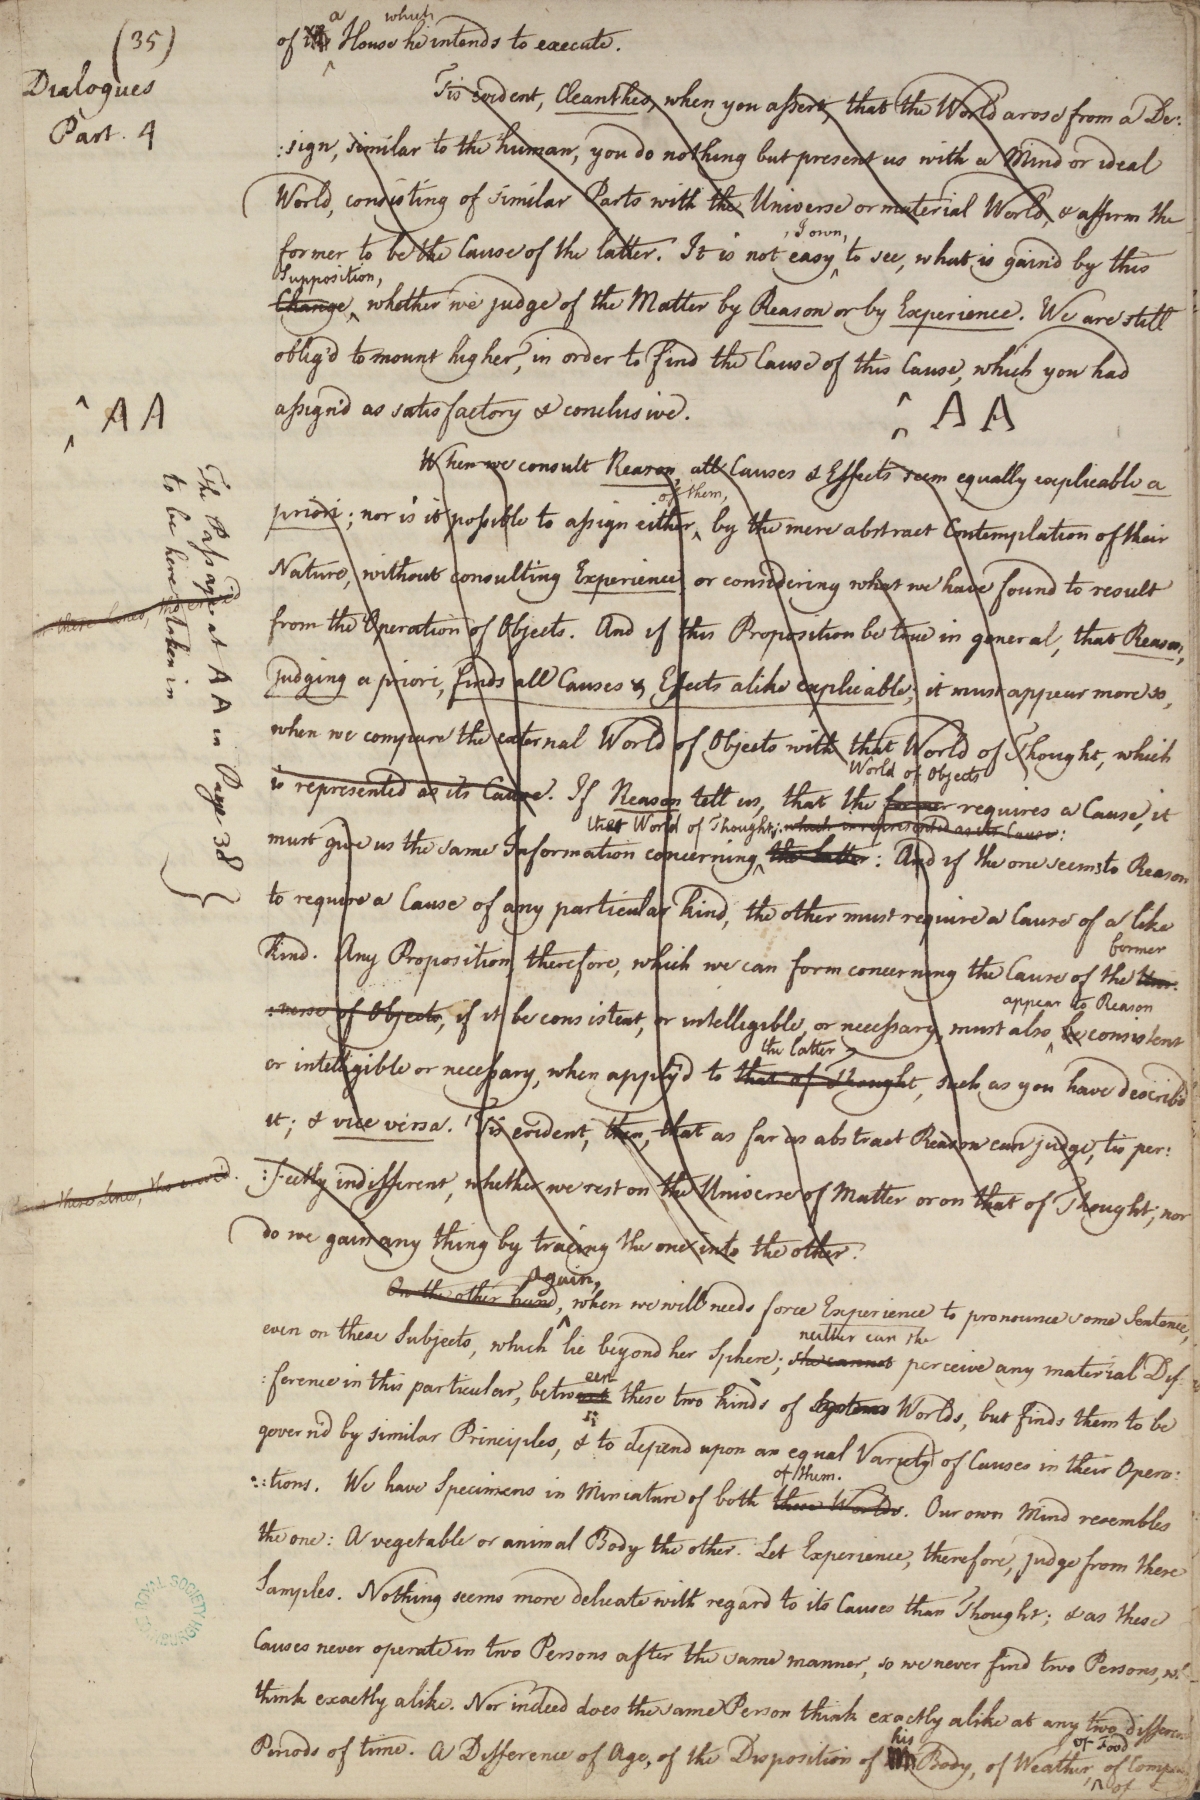 (35)
Dialogues
Part. 4
a which
of the House he intends to execute.
Tis evident, Cleanthes, when you assert, that the World arose from a De:
:sign, similar to the human, you do nothing but present us with a Mind or ideal
World, consisting of similar Parts with the Universe or material World, & affirm the
former to be the Cause of the latter. It is not easy, I own, to see, what is gain'd by this
Supposition,
Change, whether we judge of the Matter by Reason or by Experience. We are still
oblig'd to mount higher, in order to find the Cause of this Cause, which you had
assign'd as satisfactory & conclusive.
AA
AA
The Passage at AA in Page 38
to be here taken in
When we consult Reason, all Causes & Effects seem equally explicable a
of them,
priori; nor is it possible to assign either, by the mere abstract Contemplation of their
Nature, without consulting Experience, or considering what we have found to result
from the Operation of Objects. And if this Proposition be true in general, that Reason,
judging a priori, finds all Causes & Effects alike explicable; it must appear more so,
when we compare the external World of Objects with that World of Thought, which
World of Objects
is represented as its Cause. If Reason tell us, that the former requires a Cause, it
that World of Thought; which is represented as its Cause:
must give us the same Information concerning the latter: And if the one seems to Reason
to require a Cause of any particular kind, the other must require a Cause of a like
former
kind. Any Proposition, therefore, which we can form concerning the Cause of the Uni:
appear to Reason
:verse of Objects, if it be consistent, or intelligible, or necessary, must also be consistent
the latter
or intelligible or necessary, when apply'd to that of Thought, such as you have describ'd
it; & vice versa. Tis evident, then, that as far as abstract Reason can judge, tis per:
these lines,
:fectly indifferent, whether we rest on the Universe of Matter or on that of Thought; nor
do we gain any thing by tracing the one into the other.
Again,
On the other hand, when we will needs force Experience to pronounce some Sentence,
neither can she
even on these Subjects, which lie beyond her Sphere; she cannot perceive any material Dif:
een
:ference in this particular, betwixt these two kinds of Systems Worlds, but finds them to be
govern'd by similar Principles, & to depend upon an equal Variety of Causes in their Opera:
of them.
:tions. We have Specimens in Miniature of both these Worlds. Our own Mind resembles
the one: A vegetable or animal Body the other. Let Experience, therefore, judge from these
Samples. Nothing seems more delicate with regard to its Causes than Thought; & as these
Causes never operate in two Persons after the same manner, so we never find two Persons, who
think exactly alike. Nor indeed does the same Person think exactly alike at any two different
his of Food
Periods of time. A Difference of Age, of the Disposition of Body, of Weather, of Company
of